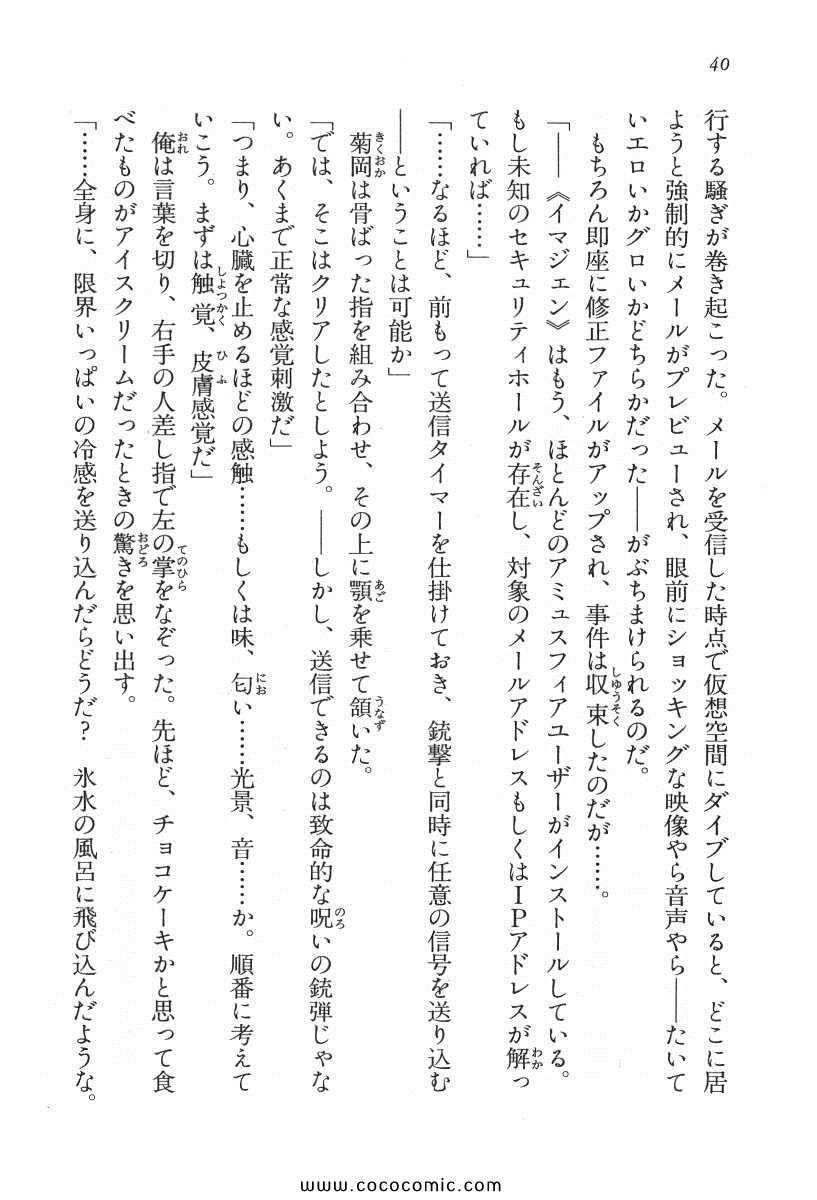 40
行する騒ぎが巻き起こった。メールを受信した時点で仮想空間にダイブしていると、どこに居
ようと強制的にメールがプレビューされ、眼前にショッキングな映像やら音声やら――たいて
いエロいかグロいかどちらかだった――がぶちまけられるのだ。
もちろん即座に修正ファイルがアップされ、事件は収束したのだが……。
「――《イマジェン》はもう、ほとんどのアミュスフィアユーザーがインストールしている。
もし未知のセキュリティホールが存在し、対象のメールアドレスもしくはＩＰアドレスが解っ
ていれば……」
「……なるほど、前もって送信タイマーを仕掛けておき、銃撃と同時に任意の信号を送り込む
――ということは可能か」
菊岡は骨ばった指を組み合わせ、その上に顎を乗せて頷いた。
「では、そこはクリアしたとしよう。――しかし、送信できるのは致命的な呪いの銃弾じゃな
い。あくまで正常な感覚刺激だ」
「つまり、心臓を止めるほどの感触……もしくは味、匂い……光景、音……か。順番に考えて
いこう。まずは触覚、皮膚感覚だ」
俺は言葉を切り、右手の人差し指で左の掌をなぞった。先ほど、チョコケーキかと思って食
べたものがアイスクリームだったときの驚きを思い出す。
「……全身に、限界いっぱいの冷感を送り込んだらどうだ？　氷水の風呂に飛び込んだような。
www.cococomic.com